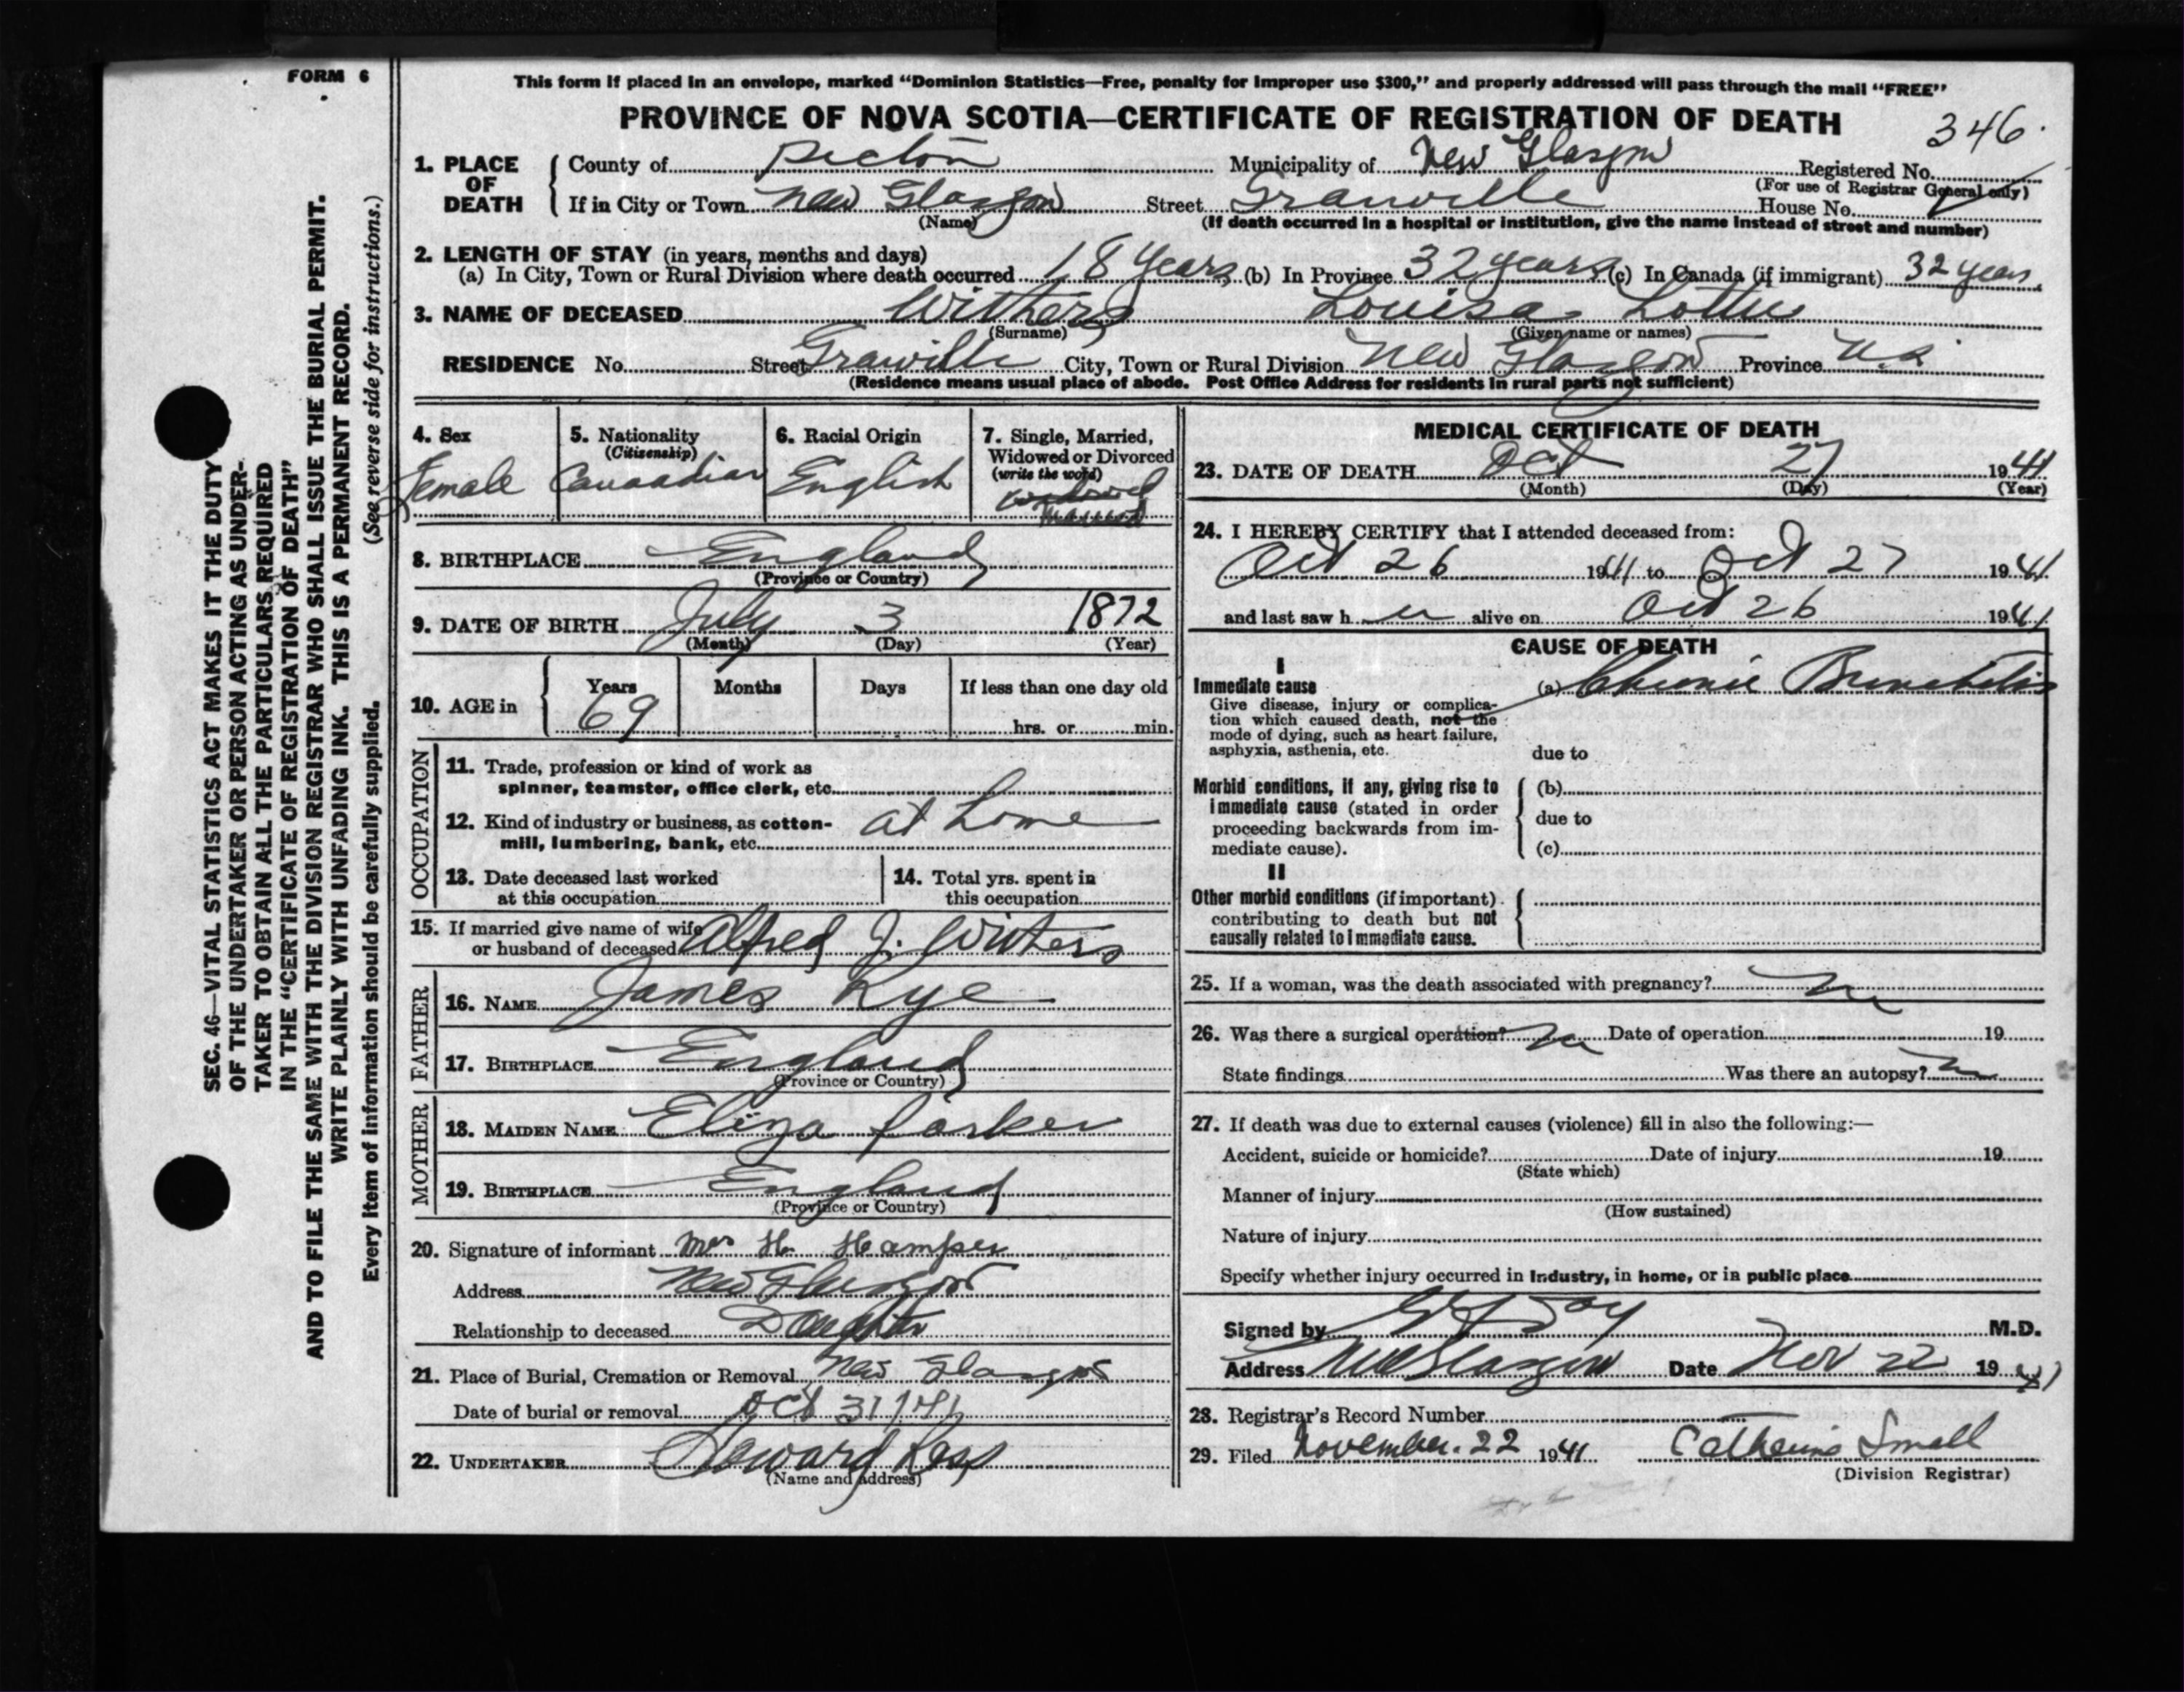 FORM 6
This form if placed in an envelope, marked “Dominion Statistics—Free, penalty for improper use $300,” and properly addressed will pass through the mail “FREE”
PROVINCE OF NOVA SCOTIA—CERTIFICATE OF REGISTRATION OF DEATH
346
1. PLACE OF DEATH
County of Pictou Municipality of New Glasgow Registered No.
(For use of Registrar General only)
If in City or Town New Glasgow Street Granville House No.
(Name) (If death occurred in a hospital or institution, give the name instead of street and number)
2. LENGTH OF STAY (in years, months and days)
(a) In City, Town or Rural Division where death occurred 18 years (b) In Province 32 years (c) In Canada (if immigrant) 32 years
3. NAME OF DECEASED Withers Louisa Lottie
(Surname) (Given name or names)
RESIDENCE No. Street Granville City, Town or Rural Division New Glasgow Province N.S.
(Residence means usual place of abode. Post Office Address for residents in rural parts not sufficient)
4. Sex
Female
5. Nationality
(Citizenship)
Canaadian
6. Racial Origin
English
7. Single, Married,
Widowed or Divorced
(write the word)
widowed
married
8. BIRTHPLACE England
(Province or Country)
9. DATE OF BIRTH July 3 1872
(Month) (Day) (Year)
10. AGE in
Years Months Days If less than one day old
69 hrs. or min.
OCCUPATION
11. Trade, profession or kind of work as
spinner, teamster, office clerk, etc.
12. Kind of industry or business, as cotton-
mill, lumbering, bank, etc. at home
13. Date deceased last worked
at this occupation
14. Total yrs. spent in
this occupation
15. If married give name of wife
or husband of deceased Alfred J. Withers
FATHER
16. NAME James Rye
17. BIRTHPLACE England
(Province or Country)
MOTHER
18. MAIDEN NAME Eliza Parker
19. BIRTHPLACE England
(Province or Country)
20. Signature of informant Mrs H. Hamper
Address New Glasgow
Relationship to deceased Daughter
21. Place of Burial, Cremation or Removal New Glasgow
Date of burial or removal Oct 31/41
22. UNDERTAKER Howard Ross
(Name and address)
MEDICAL CERTIFICATE OF DEATH
23. DATE OF DEATH Oct 27 1941
(Month) (Day) (Year)
24. I HEREBY CERTIFY that I attended deceased from:
Oct 26 1941 to Oct 27 1941
and last saw h er alive on Oct 26 1941
CAUSE OF DEATH
I
Immediate cause (a) Chronic Bronchitis
Give disease, injury or complica-
tion which caused death, not the
mode of dying, such as heart failure,
asphyxia, asthenia, etc.
due to
Morbid conditions, if any, giving rise to
immediate cause (stated in order
proceeding backwards from im-
mediate cause).
(b)
due to
(c)
II
Other morbid conditions (if important)
contributing to death but not
causally related to immediate cause.
25. If a woman, was the death associated with pregnancy? no
26. Was there a surgical operation? no Date of operation 19
State findings Was there an autopsy? no
27. If death was due to external causes (violence) fill in also the following:—
Accident, suicide or homicide? Date of injury 19
(State which)
Manner of injury
(How sustained)
Nature of injury
Specify whether injury occurred in industry, in home, or in public place
Signed by M.D.
Address New Glasgow Date Nov 22 1941
28. Registrar's Record Number
29. Filed November. 22 1941 Catherine Small
(Division Registrar)
SEC. 46—VITAL STATISTICS ACT MAKES IT THE DUTY
OF THE UNDERTAKER OR PERSON ACTING AS UNDER-
TAKER TO OBTAIN ALL THE PARTICULARS REQUIRED
IN THE “CERTIFICATE OF REGISTRATION OF DEATH”
AND TO FILE THE SAME WITH THE DIVISION REGISTRAR WHO SHALL ISSUE THE BURIAL PERMIT.
WRITE PLAINLY WITH UNFADING INK. THIS IS A PERMANENT RECORD.
Every item of information should be carefully supplied. (See reverse side for instructions.)